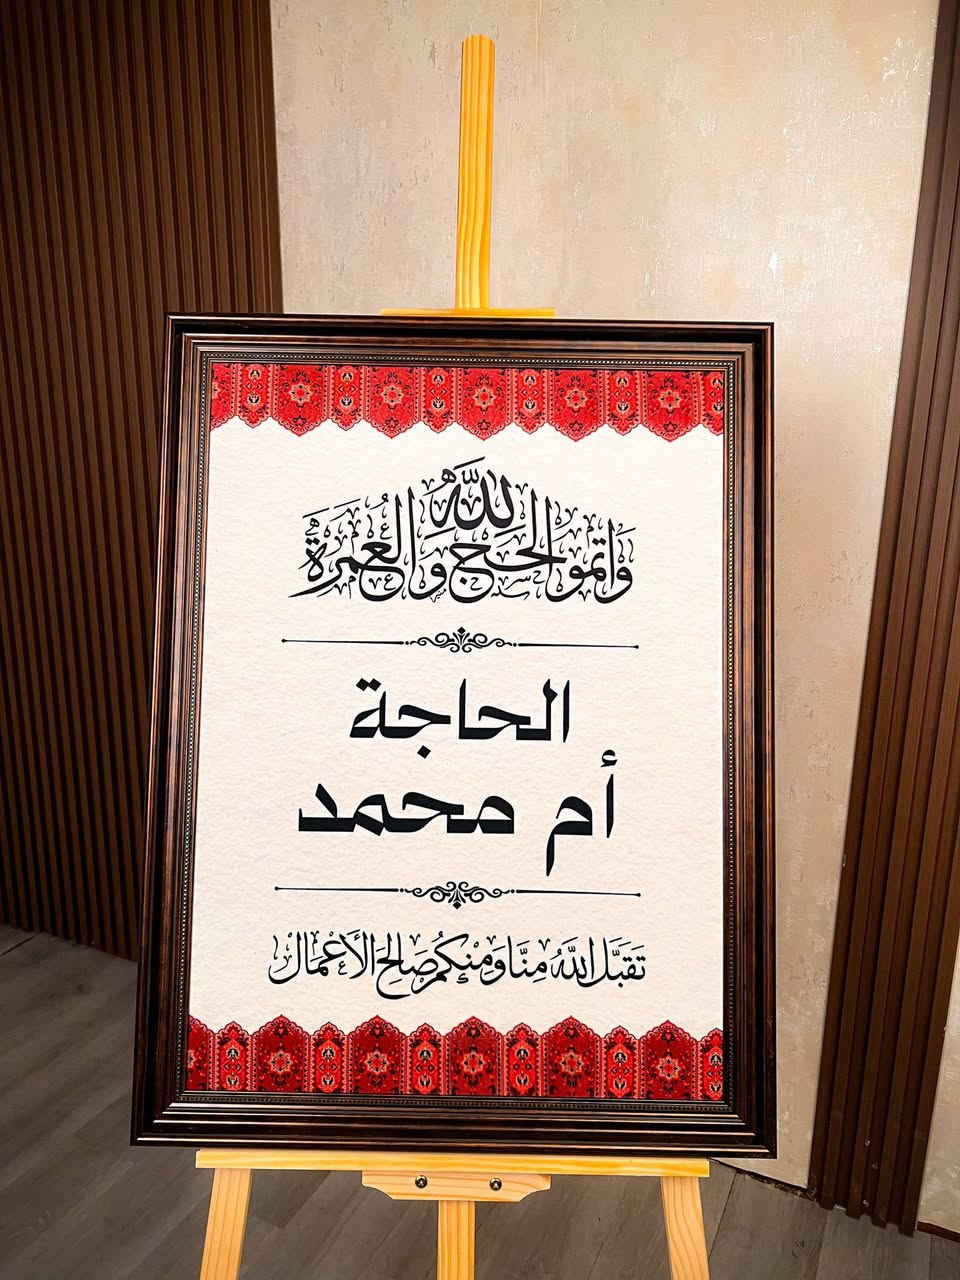 وَأتموا الحج والعُمرَة لله
الحاجة
أم محمد
تَقبَّل اللَّه مِنَّا وَمِنْكُمْ صَالِحَ الأَعْمَال